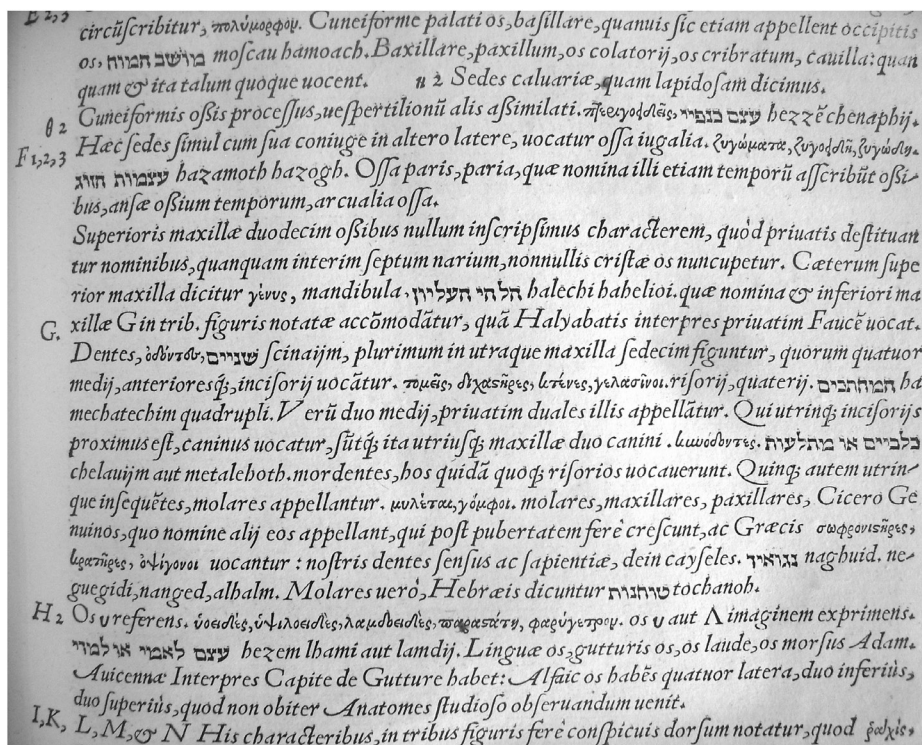 E 2,3
circũſcribitur, πολύμορφον. Cuneiforme palati os, baſillare, quanuis ſic etiam appellent occipitis
os, מושב המוח moſcau hamoach. Baxillare, paxillum, os colatorij, os cribratum, cauilla: quan
quam & ita talum quoque uocent. η 2 Sedes caluariæ, quam lapidoſam dicimus.
θ 2 Cuneiformis oſsis proceſſus, ueſpertilionũ alis aſsimilati. πτερυγοειδεῖς, עצם כנפיי hezzẽ chenaphij.
F 1,2,3 Hæc ſedes ſimul cum ſua coniuge in altero latere, uocatur oſſa iugalia. ζυγώματα, ζυγοειδῆ, ζυγώδη.
עצמות הזוג hazamoth hazogh. Oſſa paris, paria, quæ nomina illi etiam temporũ aſſcribũt oſsi⸗
bus, anſæ oſsium temporum, arcualia oſſa.
Superioris maxillæ duodecim oſsibus nullum inſcripſimus characterem, quòd priuatis deſtituan
tur nominibus, quanquam interim ſeptum narium, nonnullis criſtæ os nuncupetur. Cæterum ſupe
rior maxilla dicitur γένυς, mandibula, הלחי העליון halechi hahelioi. quæ nomina & inferiori ma
G. xillæ G in trib. figuris notatæ accõmodãtur, quã Halyabatis interpres priuatim Faucẽ uocat.
Dentes, ὀδόντες, שניים ſcinaijm, plurimum in utraque maxilla ſedecim figuntur, quorum quatuor
medij, anterioresq́;, inciſorij uocãtur. τομεῖς, διχαστῆρες, κτένες, γελασῖνοι. riſorij, quaterij. המחתכים ha
mechatechim quadrupli. Verũ duo medij, priuatim duales illis appellãtur. Qui utrinq; inciſorijs
proximus eſt, caninus uocatur, ſũtq́; ita utriuſq; maxillæ duo canini. κυνόδοντες. כלביים או מתלעות
chelauijm aut metalehoth. mordentes, hos quidã quoq; riſorios uocauerunt. Quinq; autem utrin⸗
que inſequẽtes, molares appellantur. μυλίται, γόμφοι. molares, maxillares, paxillares, Cicero Ge
nuinos, quo nomine alij eos appellant, qui poſt pubertatem ferè creſcunt, ac Græcis σωφρονιστῆρες,
κραντῆρες, ὀψίγονοι uocantur: noſtris dentes ſenſus ac ſapientiæ, dein cayſeles. נגואיך naghuid. ne⸗
guegidi, nanged, alhalm. Molares uerò, Hebræis dicuntur טוחנות tochanoh.
H 2 Os υ referens. ὑοειδὲς, ὑψιλοειδὲς, λαμβδοειδὲς, παραστάτη, φαρύγετρον. os υ aut Λ imaginem exprimens.
עצם לאמי או למדי hezem lhami aut lamdij. Linguæ os, gutturis os, os laude, os morſus Adam.
Auicennæ Interpres Capite de Gutture habet: Alfaic os habẽs quatuor latera, duo inferiùs,
duo ſuperiùs, quod non obiter Anatomes ſtudioſo obſeruandum uenit.
I, K, L, M, & N His characteribus, in tribus figuris ferè conſpicuis dorſum notatur, quod ῥάχις,